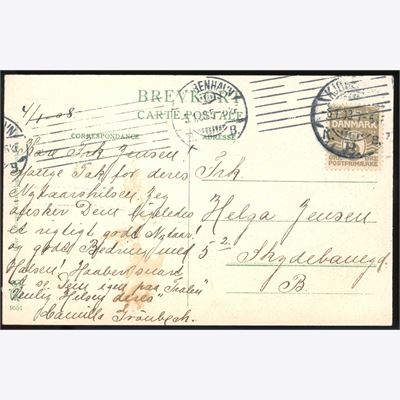 BREVKORT
CARTE POSTALE
CORRESPONDANCE
ADRESSE
KJØBENHAVN
B.
DANMARK
POSTFRIMÆRKE
4/1-08
Kære Frk Jensen!
Mange Tak for deres
Nytaarshilsen. Jeg
ønsker Dem ligeledes
et rigtigt godt Nytaar!
og god Bedring med
Halsen! Haaber snart
at se Dem igen paa "Skolen"
Venlig Hilsen deres
Camilla Grönbeck.
Frk.
Helga Jensen
5 2.
Skydebanegd.
B.